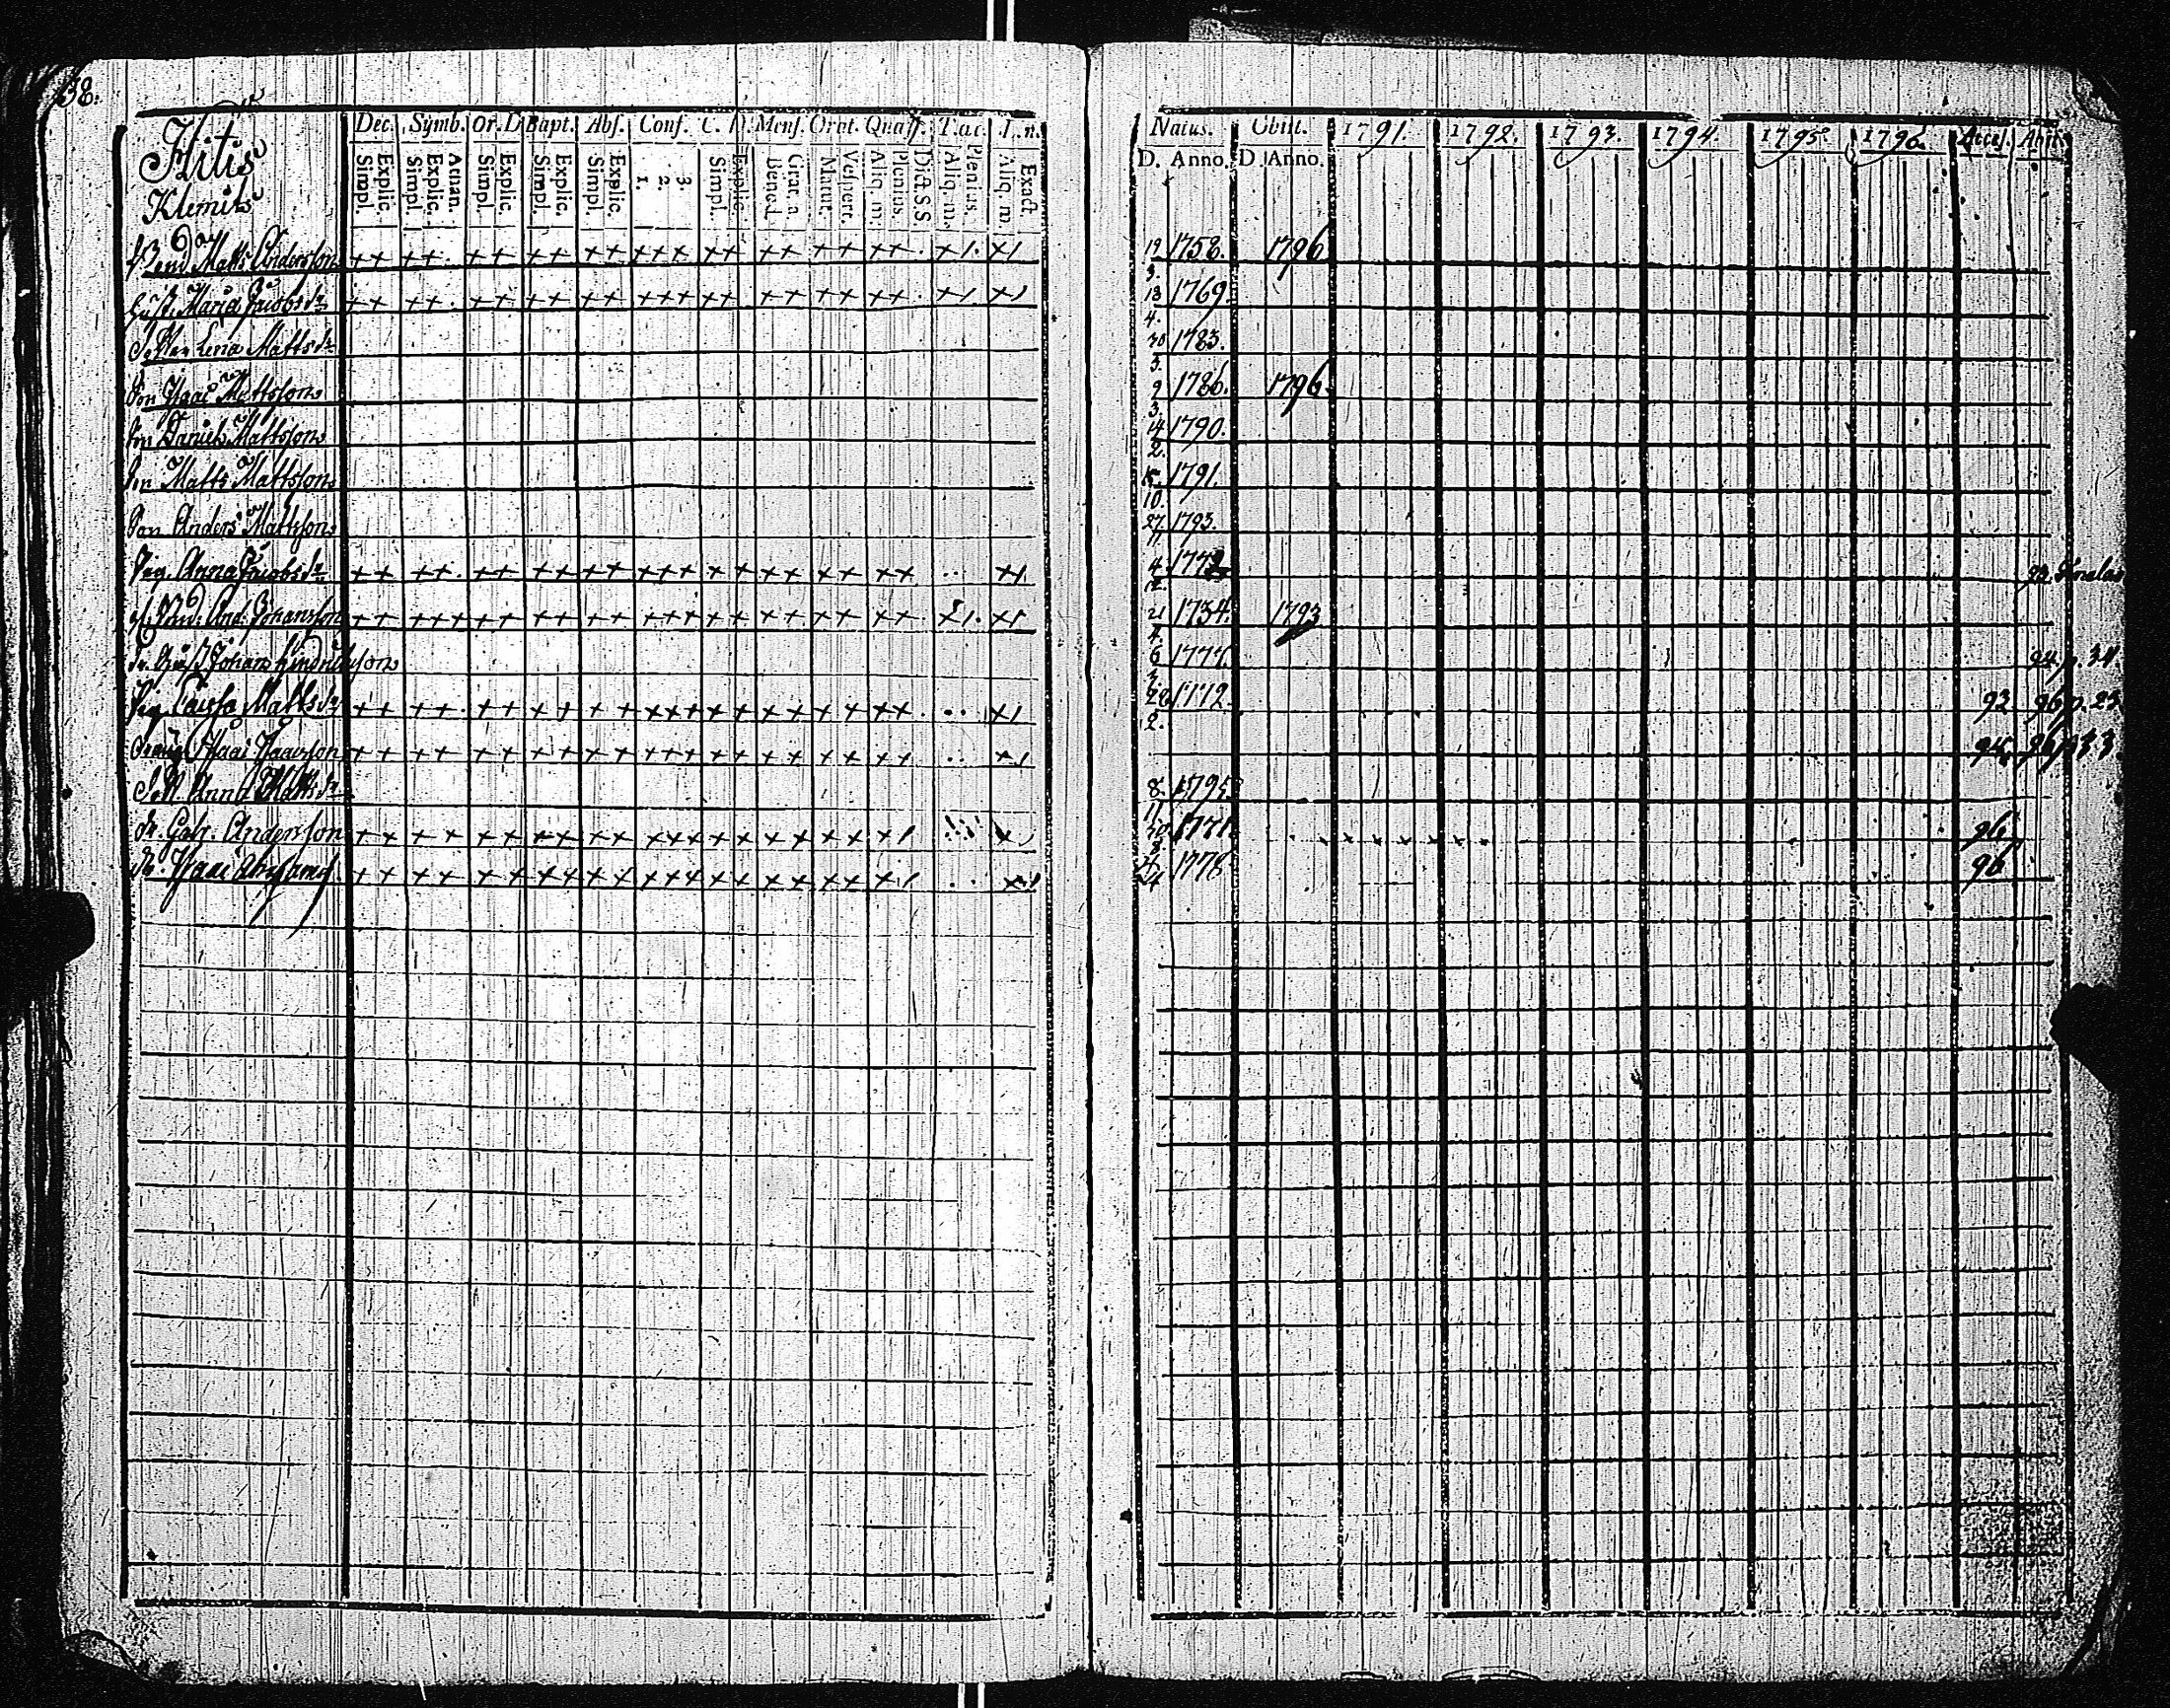 38.
Hitis
Klemits
Dec. Symb. Or. D Bapt. Abs. Conf. C. D. Mens. Orat. Quæst. T. œc. L. n.
Simpl. Explic. Simpl. Explic. Athan. Simpl. Explic. Simpl. Explic. Simpl. Explic. 1. 2. 3. Simpl. Explic. Bened. Grat. a. Matut. Vespert. Aliq. m. Plenius. Dict. S. S. Aliq. m. Plenius. Aliq. m. Exact.
Natus. Obiit. 1791. 1792. 1793. 1794. 1795. 1796. Acces. Abit.
D. Anno. D. Anno.
Matts Andersson ++ ++ ++ ++ ++ +++ ++ ++ ++ ++ 19 3. 1758. 1796
Hust. Maria Jacobsdr ++ ++ ++ ++ ++ +++ ++ ++ ++ ++ 18 4. 1769.
Lena Mattsdr 30 3. 1783.
Son Isaac Mattsson 9 3. 1786. 1796
Son Daniel Mattsson 14 2. 1790.
Son Matts Mattsson 10. 1791.
Son Anders Mattsson 27. 11 1793.
Pig. Anna Jacobsdr ++ ++ ++ ++ ++ +++ ++ ++ ++ ++ 4 12.
And. Johansson ++ +++ ++ ++ ++ +++ ++ ++ ++ ++ 21 4. 1734. 1793
Johan Hindricsson 6 1777. 94 p. 34
Pig. Caisa Mattsdr ++ ++ ++ ++ ++ +++ ++ ++ ++ ++ 28 2. 1772. 93 96 p. 23
Isaac Isaacsson ++ ++ ++ ++ ++ +++ ++ ++ ++ ++ 94 96 p 33
Anna Mattsdr 8. 11 1795
Dr. Gabr. Andersson ++ ++ ++ ++ ++ +++ ++ ++ ++ 30 8 1771. 96
Dr. Isaac Abrahams ++ ++ ++ ++ ++ +++ ++ ++ ++ 4 1778 96